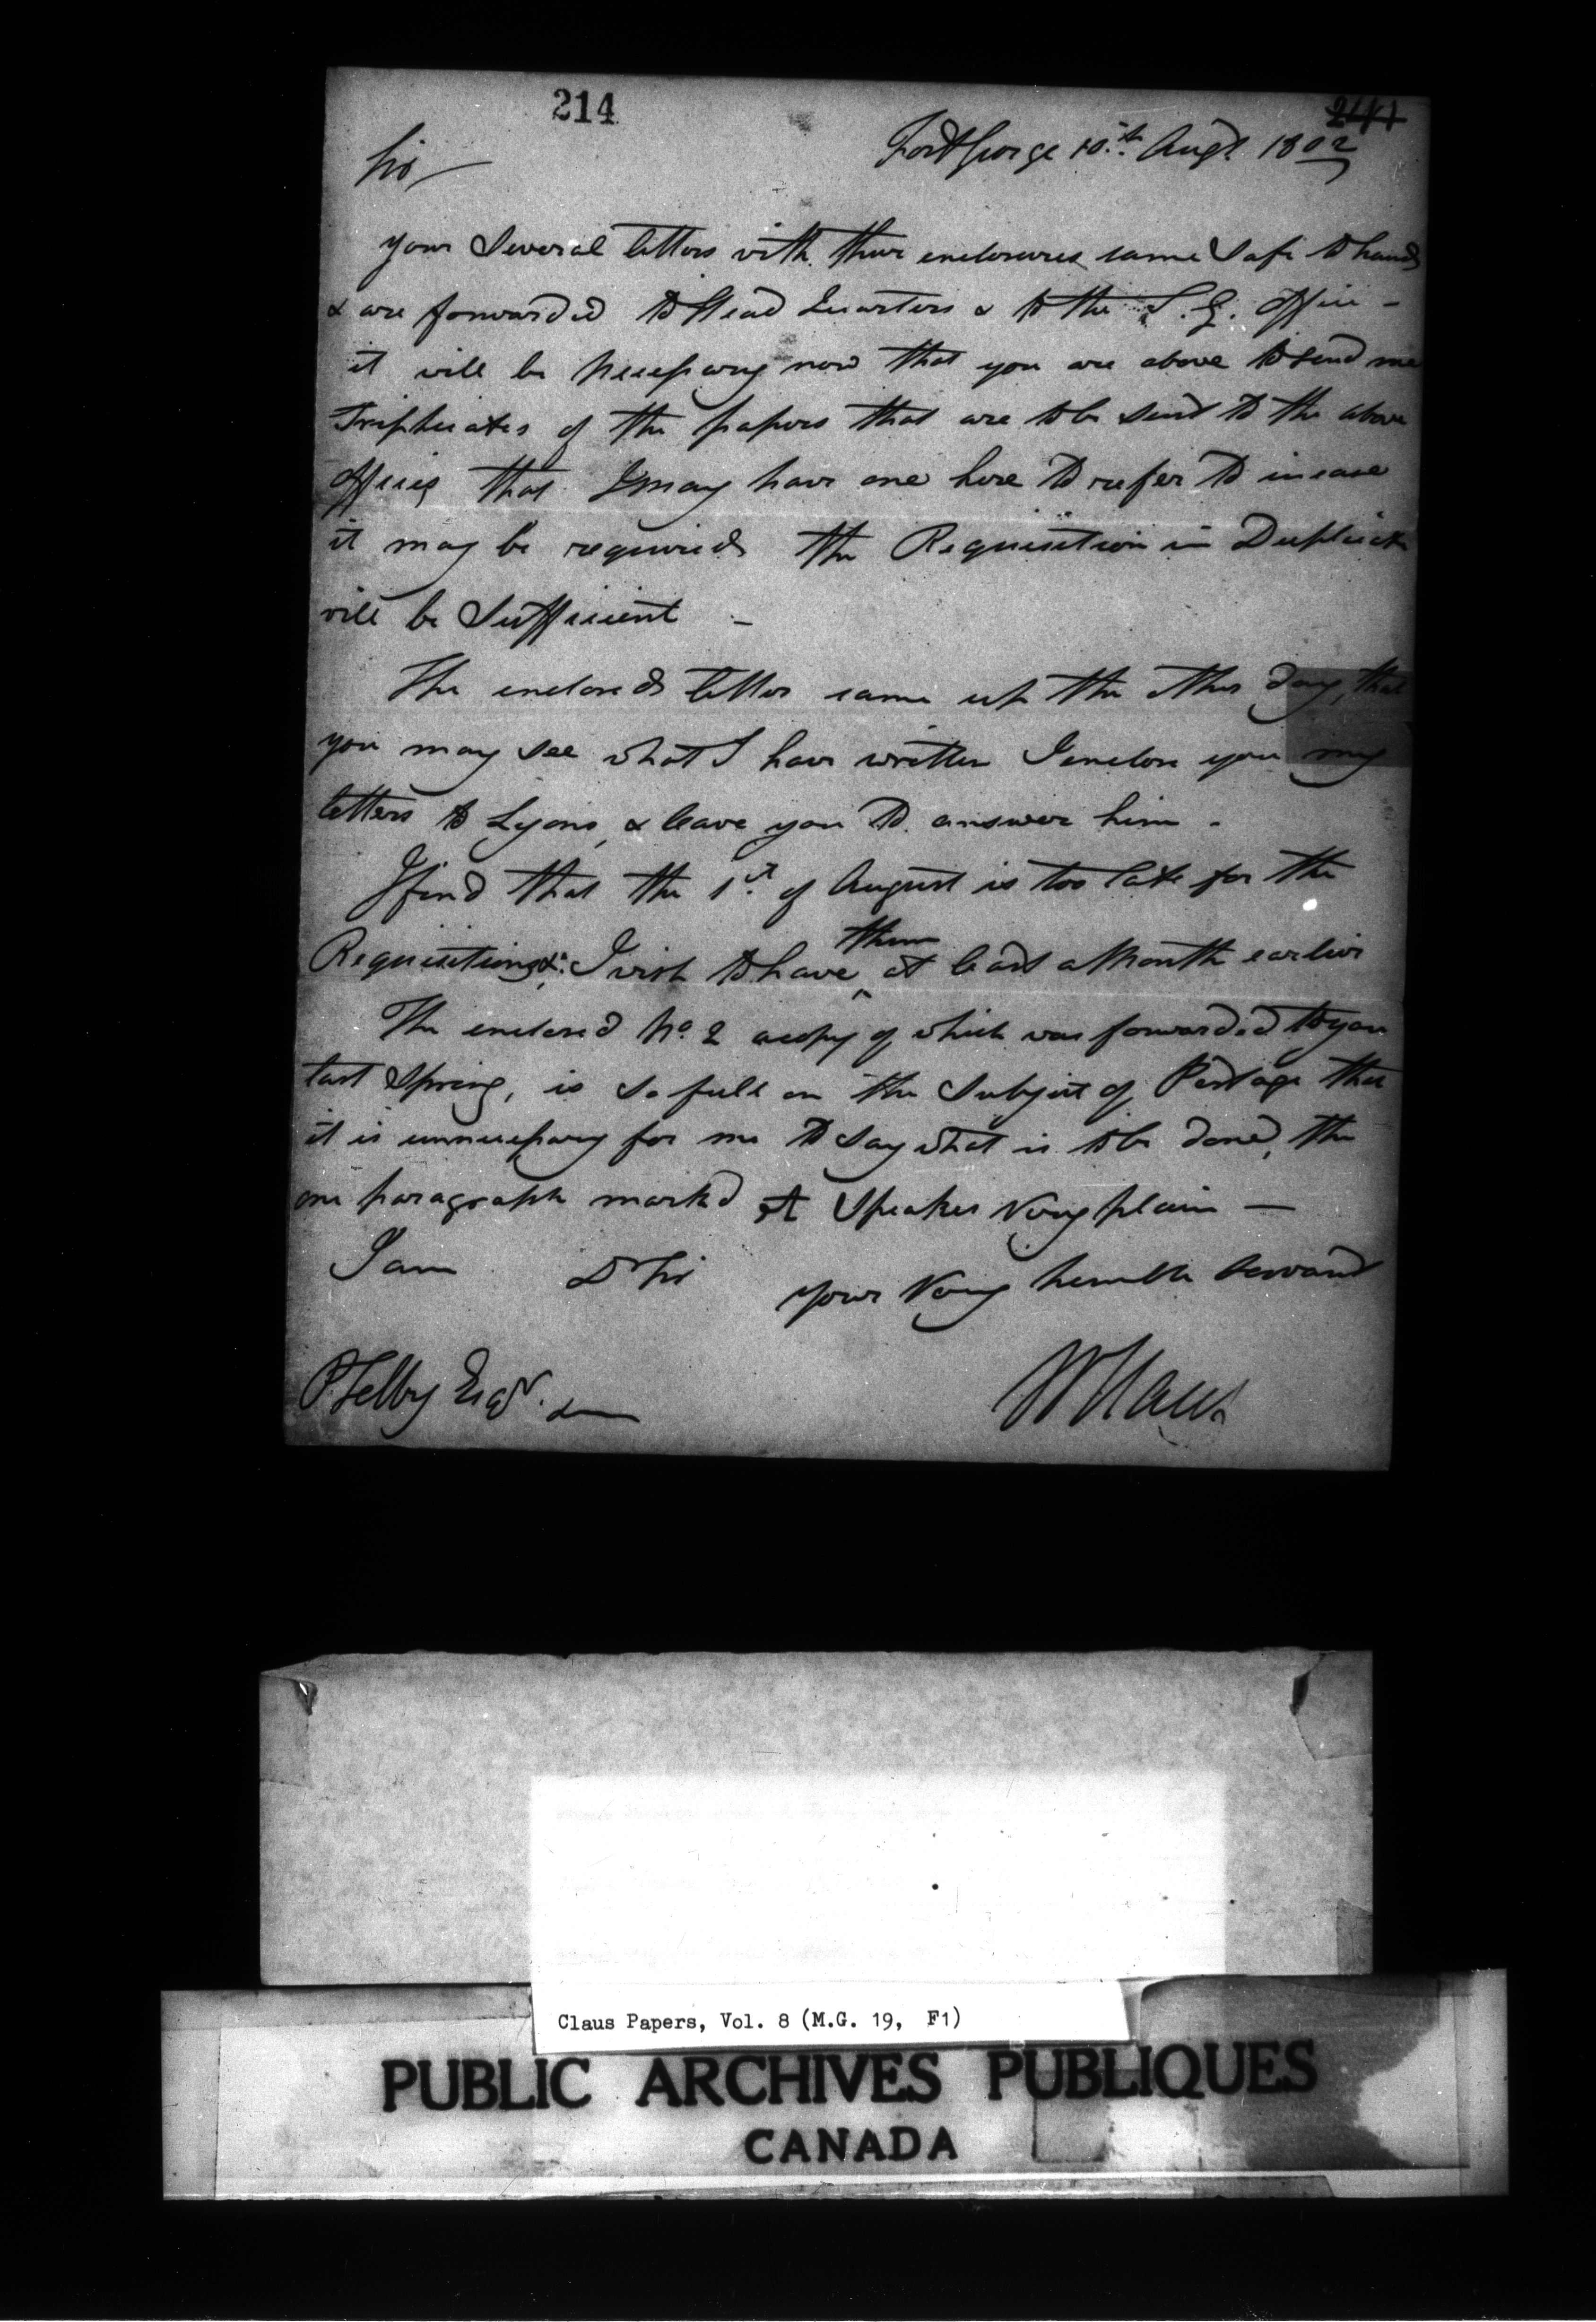 214
Sir
Fort George 10.th Augt 1802
your several letters with their enclosures came safe to hand
& are forwarded to Head Quarters & to the S. G. office -
it will be necessary now that you are above to send me
Triplicates of the papers that are to be sent to the above
offices that I may have one here to refer to in case
it may be required the Requisition in Duplicate
will be Sufficient -
The enclosed letter came up the other day, that
you may see what I have written I enclose you my
letters to Lyons, & leave you to answer him -
I find that the 1st of August is too late for the
Requisitions &c: I wish to have them at least a Month earlier
The enclosed No. 2 a copy of which was forwarded to you
last Spring, is so full on the Subject of Postage that
it is unnecessary for me to say what is to be done, the
one paragraph markd A Speakes Very plain —
I am Dr Sir your Very humble Servant
P. Selby Esqr.
W Claus
Claus Papers, Vol. 8 (M.G. 19, F1)
PUBLIC ARCHIVES PUBLIQUES
CANADA